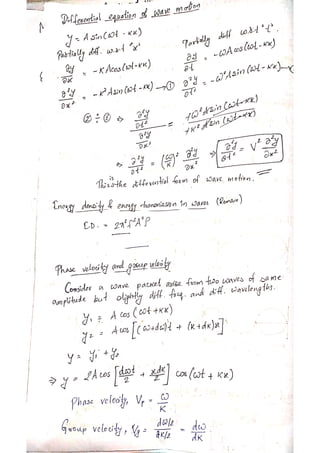 Differential equation of wave motion
y = A sin(ωt - kx)
Partially diff. w.r.t 'x'
∂y/∂x = -KAcos(ωt-kx)
∂²y/∂x² = -K²Asin(ωt-kx) —①
Partially diff w.r.t 't'.
∂y/∂t = -ωA cos(ωt-kx)
∂²y/∂t² = -ω²Asin(ωt-kx)
② ÷ ① ⇒ (∂²y/∂t²)/(∂²y/∂x²) = +ω²A sin(ωt-kx)/+K²A sin(ωt-kx)
⇒ ∂²y/∂t² = (ω/K)² ∂²y/∂x² ⇒ ∂²y/∂t² = V² ∂²y/∂x²
This is the differential form of wave motion.
Energy density & energy transmission in waves
E.D. = 2π²f²A²ρ
Phase velocity and group velocity
Consider a wave packet arise from two waves of same
amplitude but slightly diff. freq. and diff. wavelengths.
y₁ = A cos(ωt+kx)
y₂ = A cos[(ω+dω)t + (k+dk)x]
y = y₁ + y₂
⇒ y = 2A cos[dωt/2 + xdk/2] cos(ωt + kx)
Phase velocity, Vp = ω/K
Group velocity, Vg = (dω/2)/(dk/2) = dω/dK